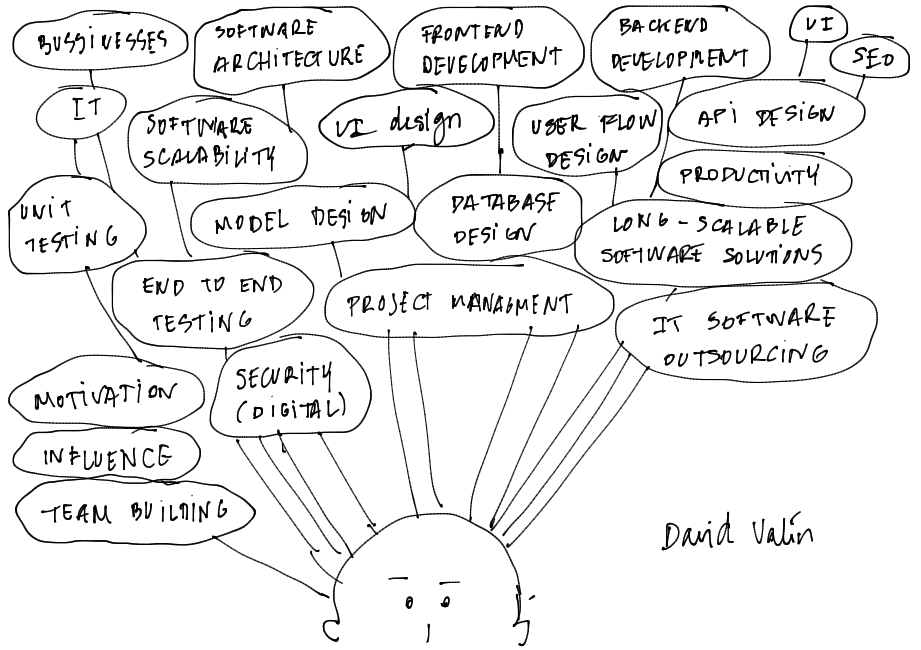 BUSSINESSES
SOFTWARE
ARCHITECTURE
FRONTEND
DEVELOPMENT
BACKEND
DEVELOPMENT
UI
SEO
IT
SOFTWARE
SCALABILITY
UI design
USER FLOW
DESIGN
API DESIGN
PRODUCTIVITY
UNIT
TESTING
MODEL DESIGN
DATABASE
DESIGN
LONG-SCALABLE
SOFTWARE SOLUTIONS
END TO END
TESTING
PROJECT MANAGMENT
IT SOFTWARE
OUTSOURCING
MOTIVATION
SECURITY
(DIGITAL)
INFLUENCE
TEAM BUILDING
David Valin